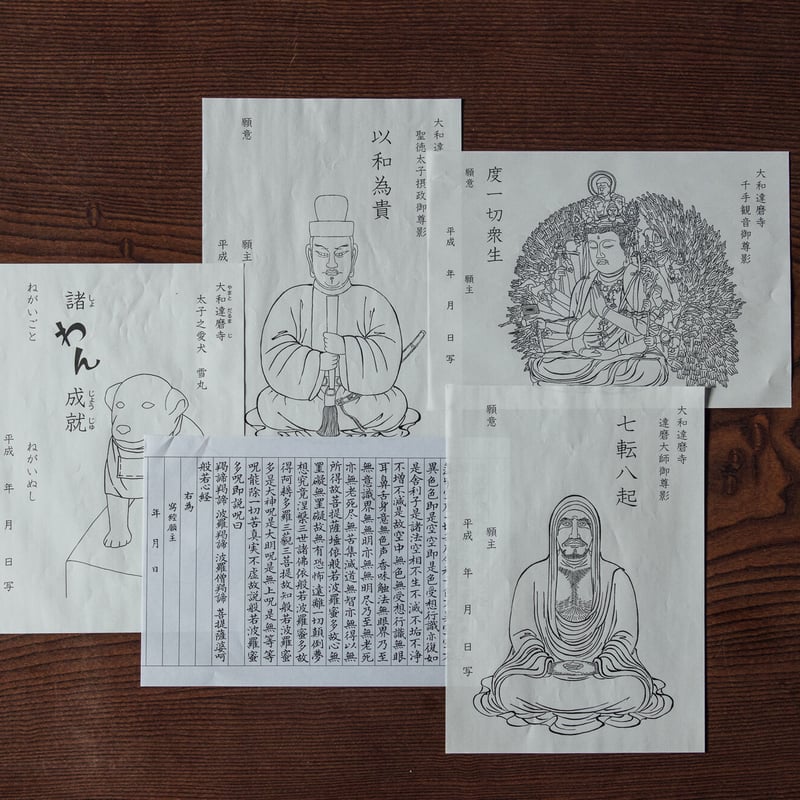 大和達
聖徳太子摂政御尊影
以和為貴
願意
願主
平成
大和達磨寺
千手観音御尊影
度一切衆生
願意 願主
平成 年 月 日 写
大和達磨寺
やまと だるま じ
太子之愛犬 雪丸
諸わん成就
しょ じょうじゅ
ねがいごと ねがいぬし
平成 年 月 日 写
異色色即是空空即是色受想行識亦復如
是舎利子是諸法空相不生不滅不垢不浄
不増不減是故空中無色無受想行識無眼
耳鼻舌身意無色声香味触法無眼界乃至
無意識界無無明亦無無明尽乃至無老死
亦無老死尽無苦集滅道無智亦無得以無
所得故菩提薩埵依般若波羅蜜多故心無
罣礙無罣礙故無有恐怖遠離一切顛倒夢
想究竟涅槃三世諸佛依般若波羅蜜多故
得阿耨多羅三藐三菩提故知般若波羅蜜
多是大神呪是大明呪是無上呪是無等等
呪能除一切苦真実不虚故説般若波羅蜜
多呪即説呪曰
羯諦羯諦 波羅羯諦 波羅僧羯諦 菩提薩婆呵
般若心経
右為
寫經願主
年 月 日
大和達磨寺
達磨大師御尊影
七転八起
願意 願主
平成 年 月 日 写